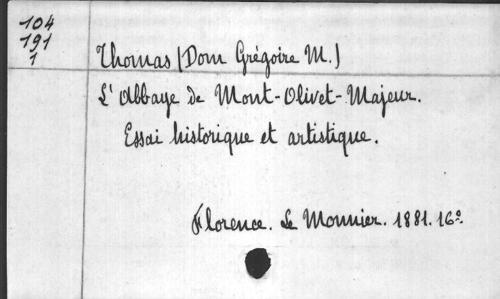 104
191
1
Thomas (Dom Grégoire M.)
L'Abbaye de Mont-Olivet-Majeur.
Essai historique et artistique.
Florence. Le Monnier. 1881. 16º.